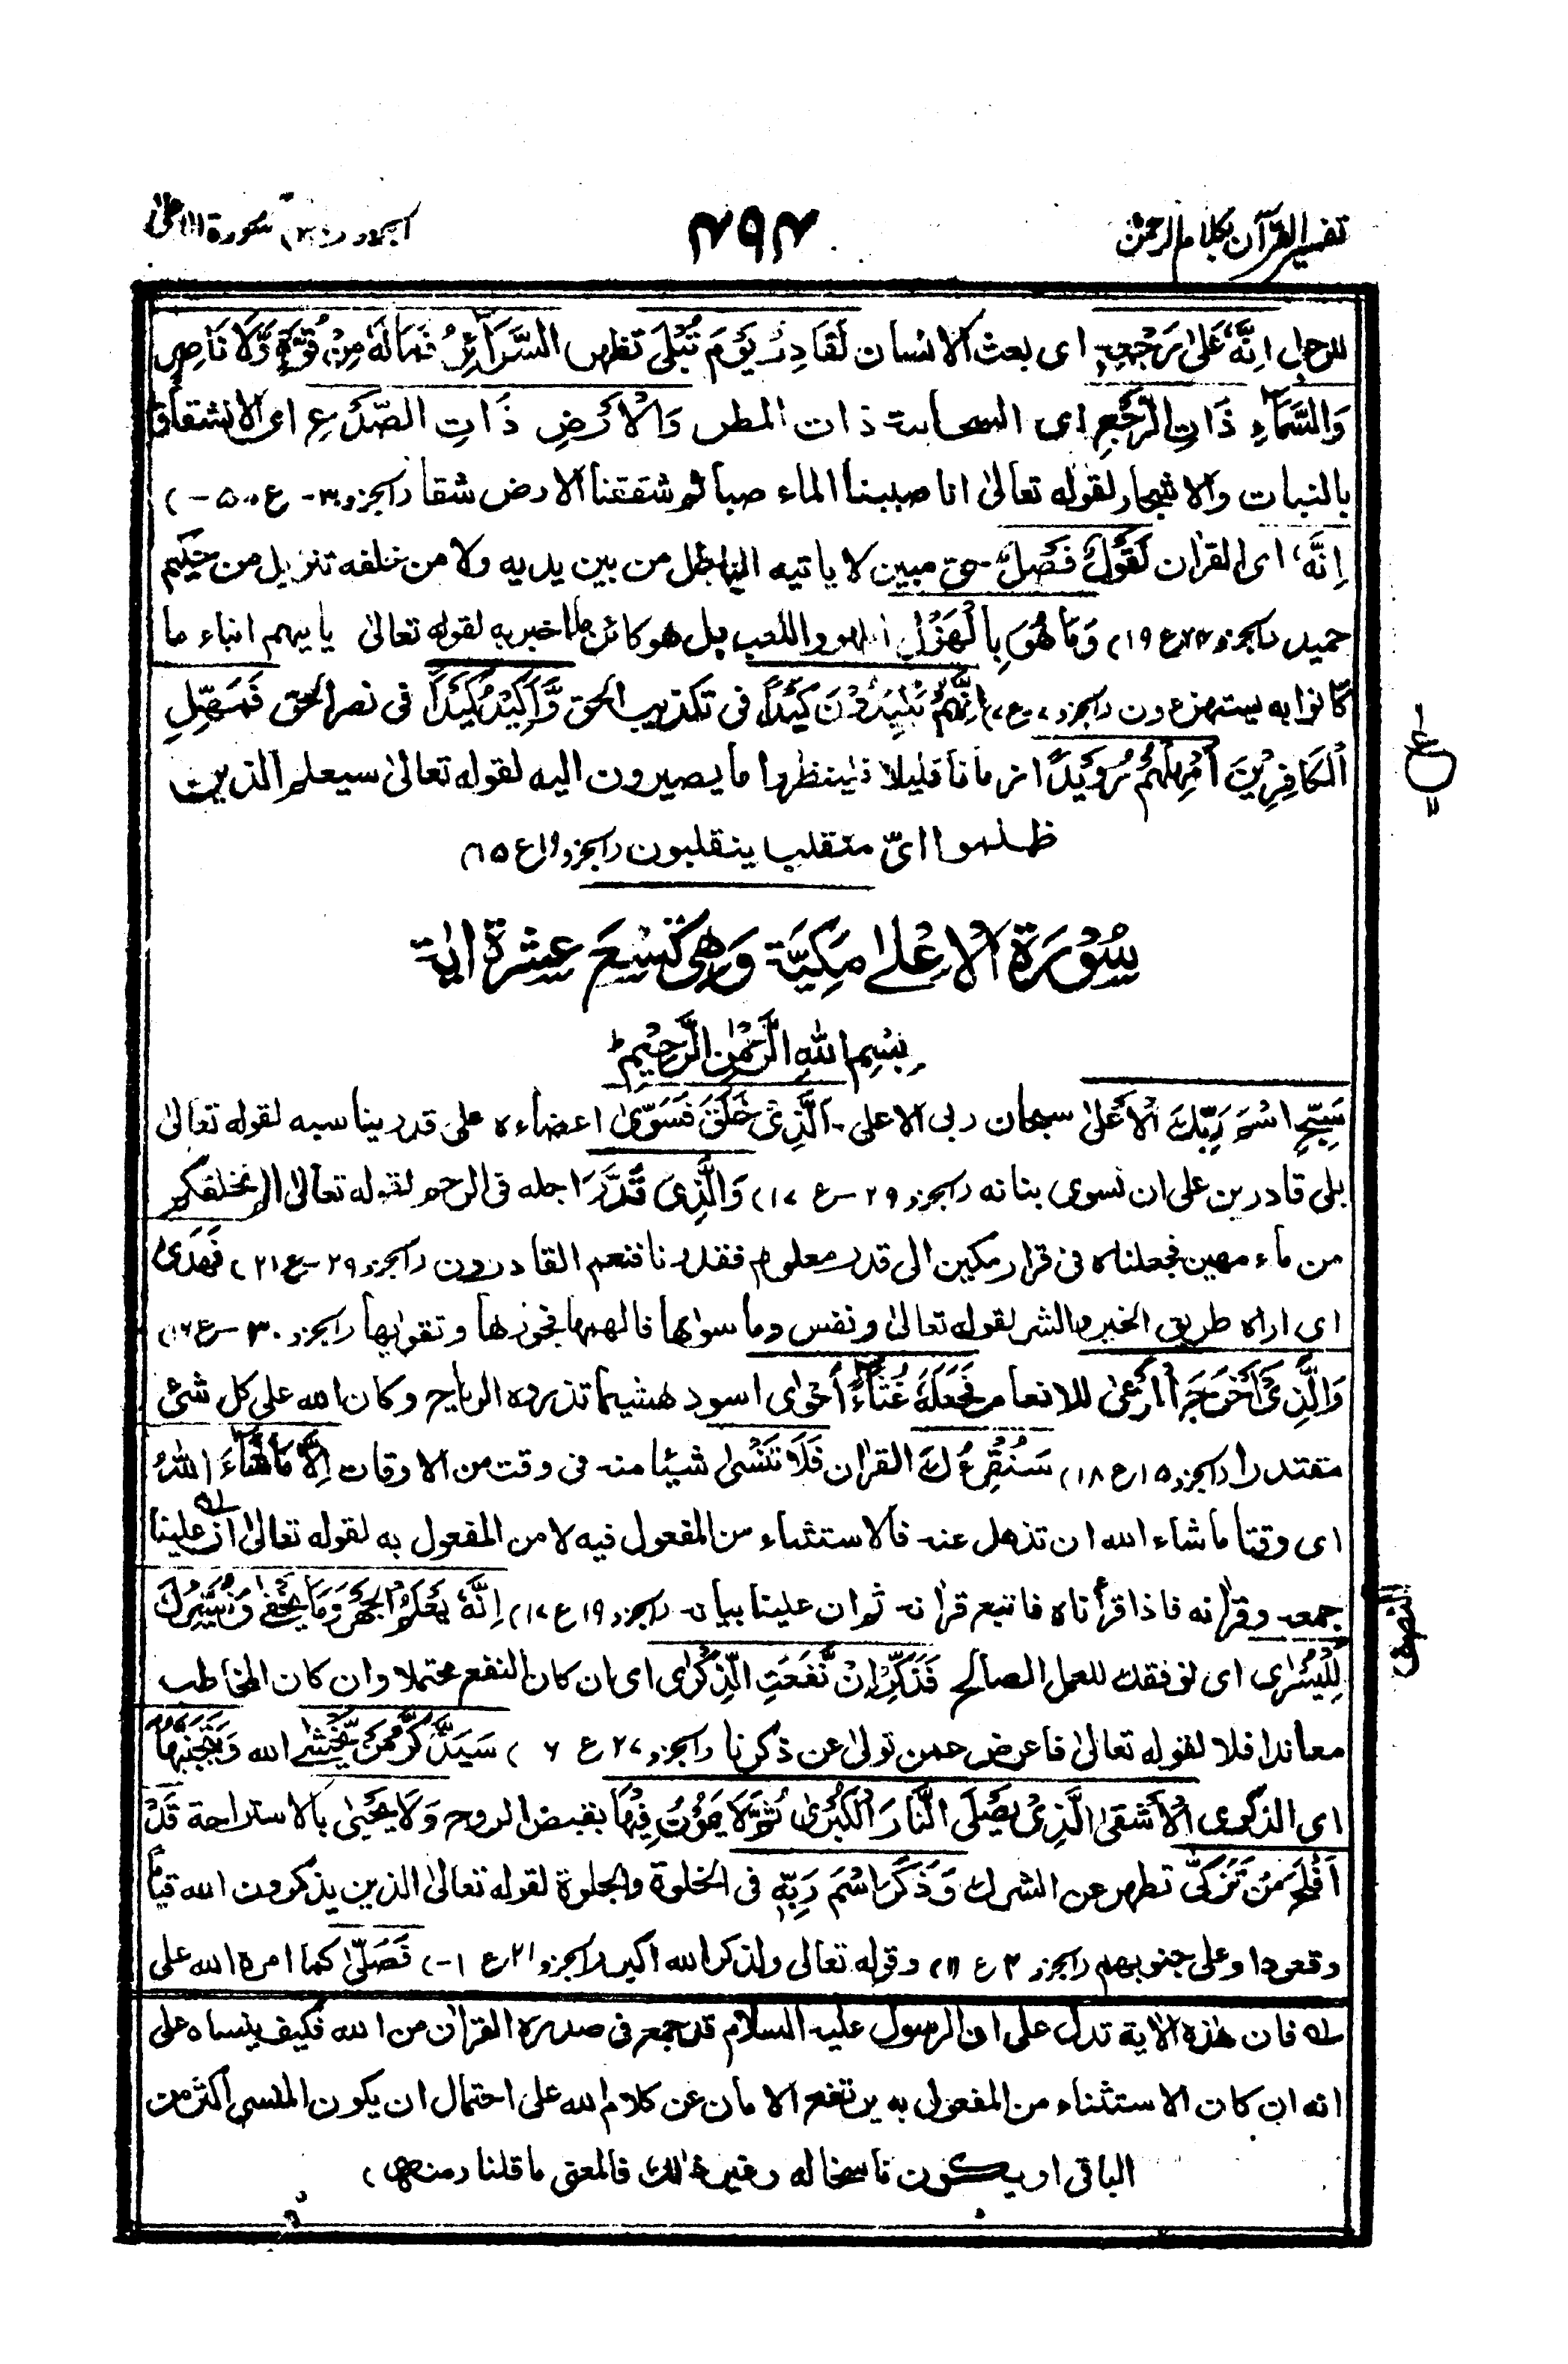 تفسير القرآن بكلام الرحمن
٣٩٤
الجزو (٣٠) سورة الاعلى
للرجل اِنَّهٗ عَلٰى رَجْعِهٖ اى بعث الانسان لَقَادِرٌ يَوْمَ تُبْلَى تظهر السَّرَآئِرُ فَمَا لَهٗ مِنْ قُوَّةٍ وَّلَا نَاصِرٍ
وَالسَّمَآءِ ذَاتِ الرَّجْعِ اى السحابة ذات المطر وَالْاَرْضِ ذَاتِ الصَّدْعِ اى الانشقاق
بالنبات والاشجار لقوله تعالىٰ انا صببنا الماء صبا ثم شققنا الارض شقا (الجزو ٣٠- ع ٥-)
اِنَّهٗ اى القران لَقَوْلٌ فَصْلٌ- حق مبين لا ياتيه الباطل من بين يديه ولا من خلفه تنزيل من حكيم
حميد (الجزو ٢٤ ع ١٩) وَمَا هُوَ بِالْهَزْلِ اللهو واللعب بل هو كائن ما اخبر به لقوله تعالىٰ ياتيهم انباء ما
كانوا به يستهزءون (الجزو ٧ ع ٧) اِنَّهُمْ يَكِيْدُوْنَ كَيْدًا فى تكذيب الحق وَّاَكِيْدُ كَيْدًا فى نصر الحق فَمَهِّلِ
الْكَافِرِيْنَ اَمْهِلْهُمْ رُوَيْدًا زمانا قليلا فلينظروا ما يصيرون اليه لقوله تعالىٰ سيعلم الذين
ظلموا اىّ منقلب ينقلبون (الجزو ١٩ ع ١٥)
سُوْرَةُ الْاَعْلٰى مَكِيَّة وَهِىَ تِسْعَ عَشْرَةَ اٰيٰة
بِسْمِ اللهِ الرَّحْمٰنِ الرَّحِيْمِ
سَبِّحِ اسْمَ رَبِّكَ الْاَعْلَى سبحان ربى الاعلى- الَّذِىْ خَلَقَ فَسَوّٰى اعضاءه على قدر يناسبه لقوله تعالىٰ
بلى قادرين على ان نسوى بنانه (الجزو ٢٩- ع ١٧) وَالَّذِىْ قَدَّرَ اجله فى الرحم لقوله تعالىٰ الم نخلقكم
من ماء مهين فجعلناه فى قرار مكين الى قدر معلوم فقدرنا فنعم القادرون (الجزو ٢٩- ع ٢١) فَهَدٰى
اى اراه طريق الخير والشر لقوله تعالىٰ ونفس وما سواها فالهمها فجورها وتقوٰىها (الجزو ٣٠- ع ١٦)
وَالَّذِىْ اَخْرَجَ الْمَرْعٰى للانعام فَجَعَلَهٗ غُثَآءً اَحْوٰى اسود هشيما تذروه الرياح وكان الله على كل شئ
مقتدرا (الجزو ١٥ ع ١٨) سَنُقْرِءُكَ القراٰن فَلَا تَنْسٰى شيئا منه فى وقت من الاوقات اِلَّا مَا شَآءَ اللهُ
اى وقتا ما شاء الله ان تذهل عنه فالاستثناء من المفعول فيه لا من المفعول به لقوله تعالىٰ ان علينا
جمعه وقرانه فاذا قرأناه فاتبع قرانه ثم ان علينا بيانه (الجزو ٢٩ ع ١٧) اِنَّهٗ يَعْلَمُ الْجَهْرَ وَمَا يَخْفٰى وَنُيَسِّرُكَ
لِلْيُسْرٰى اى نوفقك للعمل الصالح فَذَكِّرْ اِنْ نَّفَعَتِ الذِّكْرٰى اى ان كان النفع محتملا وان كان المخاطب
معاندا فلا لقوله تعالىٰ فاعرض عمن تولىٰ عن ذكرنا (الجزو ٢٧ ع ٦) سَيَذَّكَّرُ مَنْ يَّخْشٰى الله وَيَتَجَنَّبُهَا
اى الذكرى الْاَشْقَى الَّذِىْ يَصْلَى النَّارَ الْكُبْرٰى ثُمَّ لَا يَمُوْتُ فِيْهَا بقبض الروح وَلَا يَحْيٰى بالاستراحة قَدْ
اَفْلَحَ مَنْ تَزَكّٰى تطهر عن الشرك وَذَكَرَ اسْمَ رَبِّهٖ فى الخلوة والجلوة لقوله تعالىٰ الذين يذكرون الله قياما
وقعودا وعلى جنوبهم (الجزو ٤ ع ١١) وقوله تعالى ولذكر الله اكبر (الجزو ٢١ ع ١-) فَصَلّٰى كما امره الله على
لٰه فان هٰذه الاية تدل على ان الرسول عليه السلام قد جمع فى صدره القراٰن من الله فكيف ينساه على
انه ان كان الاستثناء من المفعول به يرتفع الامان عن كلام الله على احتمال ان يكون المنسى اكثر من
الباقى او يكون ناسخا له وغير ذٰلك فالمعنى ما قلنا (منه)
ع
١١
النصف